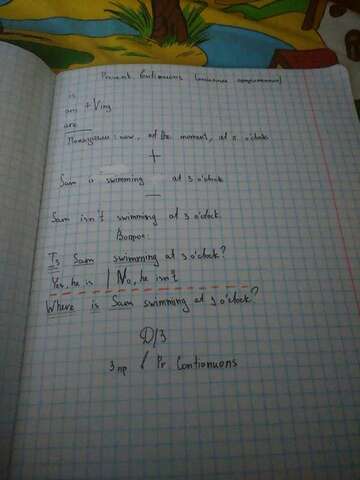 Present Continuous (настоящее продолженное)
is
am + Ving
are
Показатели: now, at the moment, at 5 o'clock
+
Sam is swimming at 3 o'clock
—
Sam isn't swimming at 3 o'clock.
Вопрос:
Is Sam swimming at 3 o'clock?
Yes, he is | No, he isn't
Where is Sam swimming at 3 o'clock?
D/З
3 пр в Pr Continuous